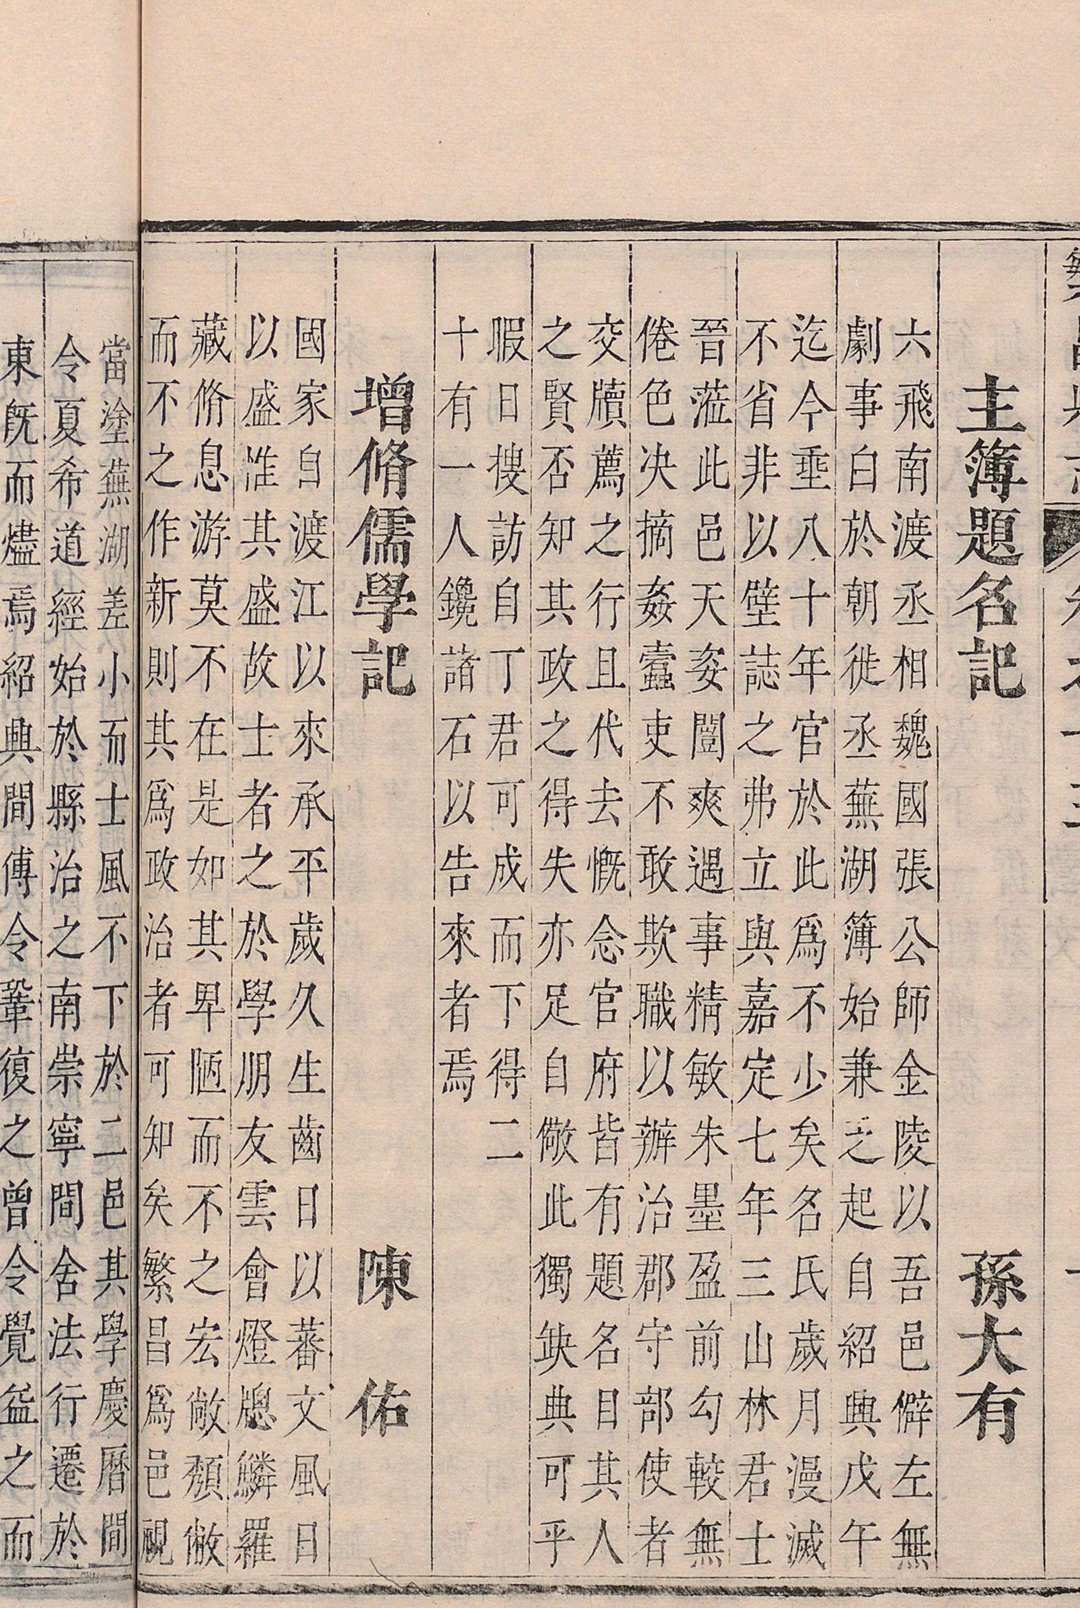 主簿題名記 孫大有
六飛南渡丞相魏國張公師金陵以吾邑僻左無
劇事白於朝徙丞蕪湖簿始兼之起自紹興戊午
迄今垂八十年官於此為不少矣名氏歲月漫滅
不省非以壁誌之弗立與嘉定七年三山林君士
晉蒞此邑天姿闓爽遇事精敏朱墨盈前勾較無
倦色决摘姦蠹吏不敢欺職以辦治郡守部使者
交牘薦之行且代去慨念官府皆有題名目其人
之賢否知其政之得失亦足自儆此獨缺典可乎
暇日搜訪自丁君可成而下得二
十有一人鑱諸石以告來者焉
增脩儒學記 陳佑
國家自渡江以來承平歲久生齒日以蕃文風日
以盛惟其盛故士者之於學朋友雲會燈牕鱗羅
藏脩息游莫不在是如其卑陋而不之宏敞頽敝
而不之作新則其為政治者可知矣繁昌為邑視
當塗蕪湖差小而士風不下於二邑其學慶曆間
令夏希道經始於縣治之南崇寧間舍法行遷於
東旣而燼焉紹興間傅令鞏復之曾令覺益之而